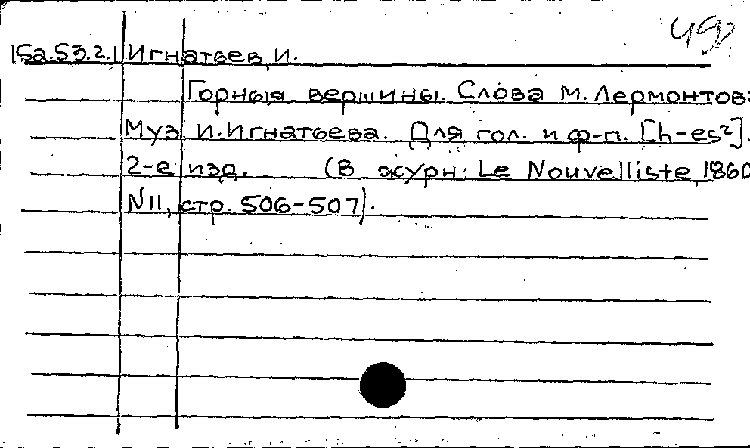 49
15a.53.2.1 Игнатьев, И.
Горныя вершины. Слова М. Лермонтова
Муз И. Игнатьева. Для гол. и ф-п. [h-es²].
2-е изд. (В журн: Le Nouvelliste, 1860
N11, стр. 506-507).